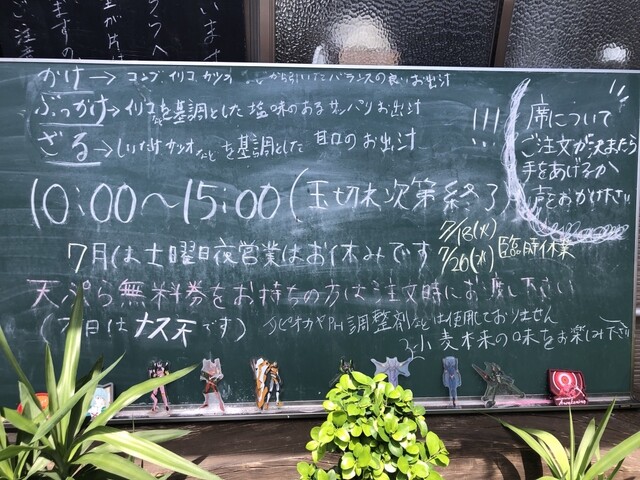 かけ→コンブ、イリコ、カツオ から引いたバランスの良いお出汁
ぶっかけ→イリコなどを基調とした塩味のあるサッパリお出汁
ざる→しいたけカツオなどを基調とした 甘口のお出汁
!!!
席について
ご注文が決またら
手をあげるか
声をおかけ下さい
10:00〜15:00(玉切れ次第終了)
7月は土曜日夜営業はお休みです
7/18(火)
7/26(水)
臨時休業
天ぷら無料券をお持ちの方は注文時にお渡し下さい
(7月はナス天です)
タピオカやPH調整剤などは使用しておりません
小麦本来の味をお楽しみ下さい